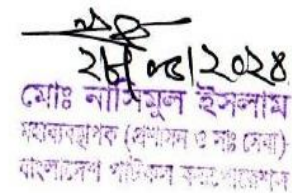 ২৮|০৫|২০২৪
মোঃ নাসিমুল ইসলাম
মহাব্যবস্থাপক (প্রশাসন ও সাঃ সেবা)
বাংলাদেশ পাটকল করপোরেশন